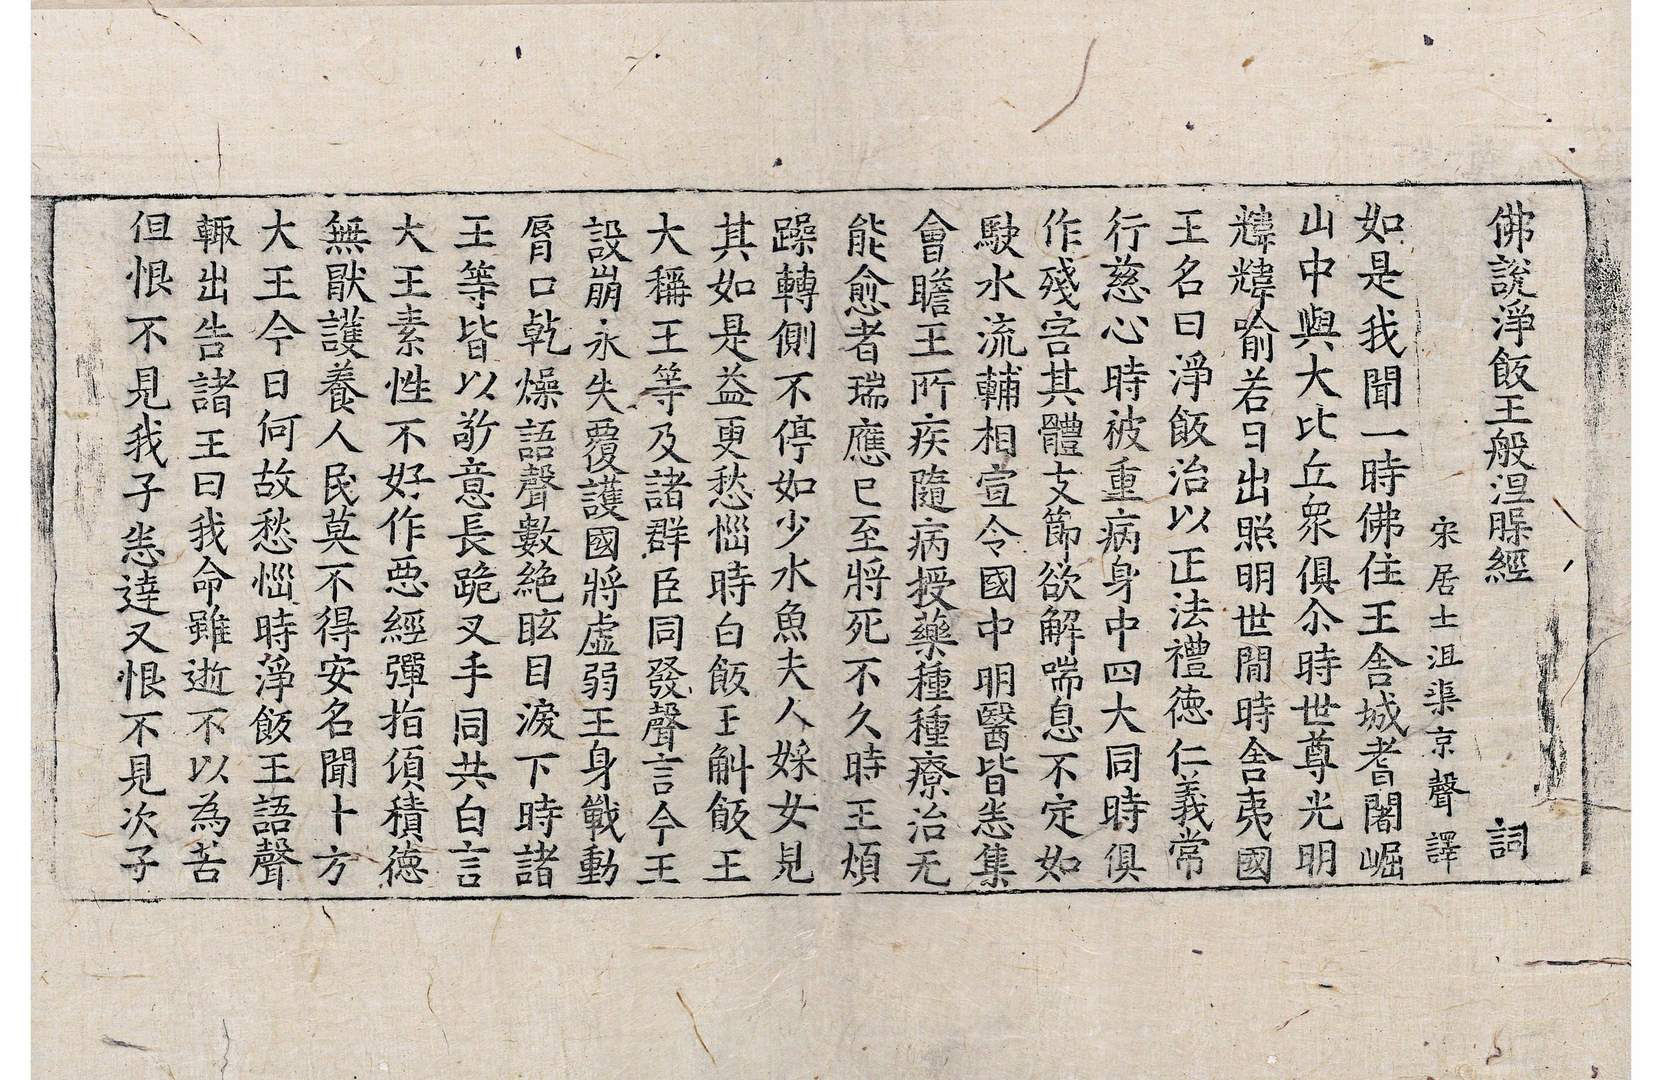 佛說淨飯王般涅槃經　詞
宋居士沮渠京聲譯
如是我聞一時佛住王舍城耆闍崛
山中與大比丘衆俱尒時世尊光明
暐暐喻若日出照明世間時舍夷國
王名曰淨飯治以正法禮德仁義常
行慈心時被重病身中四大同時俱
作殘害其體支節欲解喘息不定如
駛水流輔相宣令國中明醫皆悉集
會瞻王所疾隨病授藥種種療治无
能愈者瑞應已至將死不久時王煩
躁轉側不停如少水魚夫人婇女見
其如是益更愁惱時白飯王斛飯王
大稱王等及諸群臣同發聲言今王
設崩永失覆護國將虛弱王身戰動
脣口乾燥語聲數絶眩目淚下時諸
王等皆以敬意長跪叉手同共白言
大王素性不好作惡經彈指頃積德
無猒護養人民莫不得安名聞十方
大王今日何故愁惱時淨飯王語聲
輙出告諸王曰我命雖逝不以為苦
但恨不見我子悉達又恨不見次子